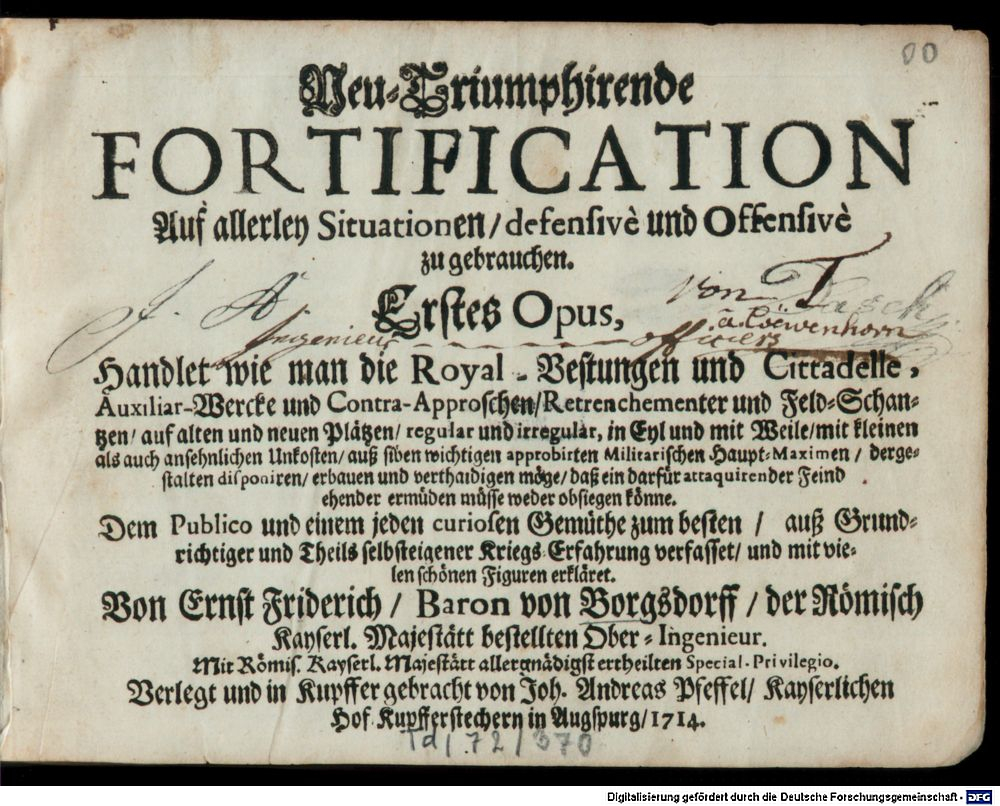 00
Neu-Triumphirende
FORTIFICATION
Auf allerley Situationen / defensivè und Offensivè
zu gebrauchen.
Erstes Opus,
J. A von T
Ingenieur officiers
à Löewenhorn
Handlet wie man die Royal-Vestungen und Cittadelle,
Auxiliar-Wercke und Contra-Approschen/Retrenchementer und Feld-Schan-
tzen/ auf alten und neuen Plätzen/ regular und irregular, in Eyl und mit Weile/mit kleinen
als auch ansehnlichen Unkosten/ auß siben wichtigen approbirten Militarischen Haupt-Maximen / derge-
stalten disponiren/ erbauen und verthaidigen möge/ daß ein darfür attaquirender Feind
ehender ermüden müsse weder obsiegen könne.
Dem Publico und einem jeden curiosen Gemüthe zum besten / auß Grund-
richtiger und Theils selbsteigener Kriegs-Erfahrung verfasset/ und mit vie-
len schönen Figuren erkläret.
Von Ernst Friderich / Baron von Borgsdorff / der Römisch
Kayserl. Majestätt bestellten Ober-Ingenieur.
Mit Römis. Kayserl. Majestätt allergnädigst ertheilten Special-Privilegio.
Verlegt und in Kupffer gebracht von Joh. Andreas Pfeffel/ Kayserlichen
Hof Kupfferstechern in Augspurg/1714.
Td/72/370
Digitalisierung gefördert durch die Deutsche Forschungsgemeinschaft - DFG